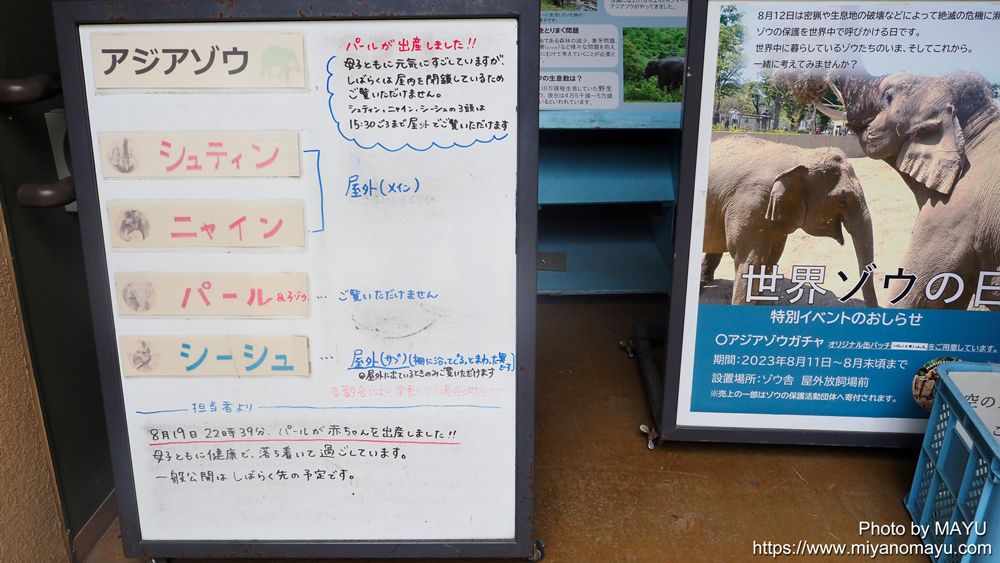 アジアゾウ
パールが出産しました!!
母子ともに元気にすごしていますが、
しばらくは屋内を閉鎖しているため
ご覧いただけません。
シュティン、ニャイン、シーシュの3頭は
15:30ごろまで屋外でご覧いただけます
シュティン
ニャイン
屋外(メイン)
パール &子ゾウ … ご覧いただけません
シーシュ … 屋外(サブ)(柵に沿ってぐるっとまわった奥です)
◎屋外に出ているときのみご覧いただけます
担当者より
8月19日22時39分、パールが赤ちゃんを出産しました!!
母子ともに健康で、落ち着いて過ごしています。
一般公開はしばらく先の予定です。
とりまく問題
の生息数は?
8月12日は密猟や生息地の破壊などによって絶滅の危機に瀕
ゾウの保護を世界中で呼びかける日です。
世界中に暮らしているゾウたちのいま、そしてこれから。
一緒に考えてみませんか?
世界ゾウの日
特別イベントのおしらせ
〇アジアゾウガチャ オリジナル缶バッチ をご用意しています。
期間:2023年8月11日~8月末頃まで
設置場所:ゾウ舎 屋外放飼場前
※売上の一部はゾウの保護活動団体へ寄付されます。
Photo by MAYU
https://www.miyanomayu.com/